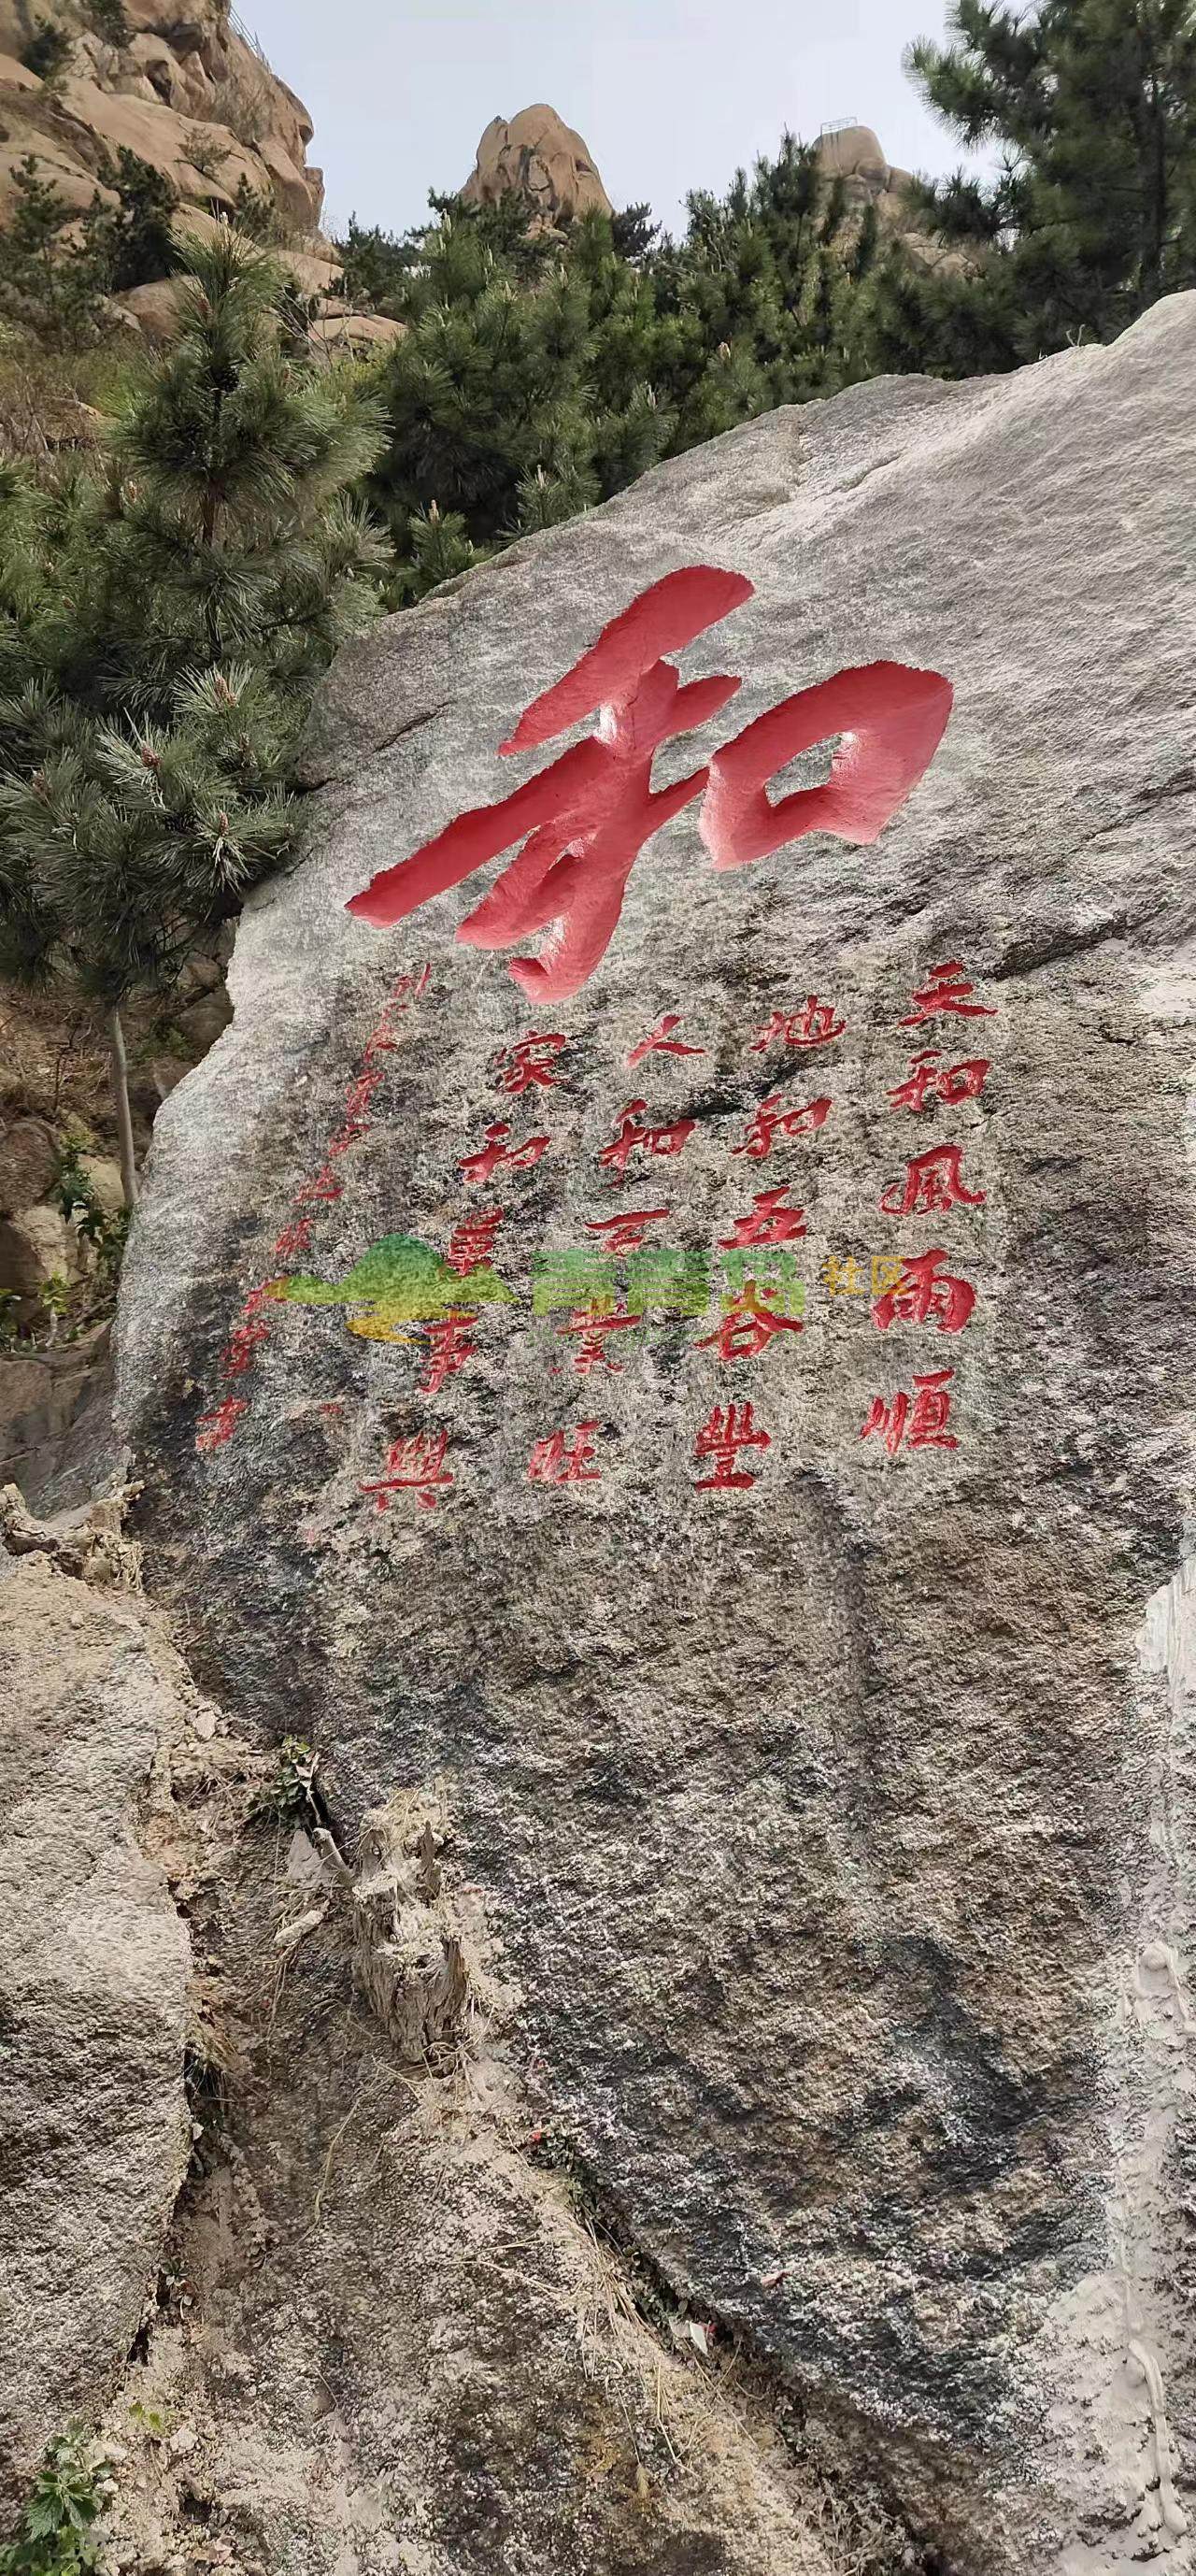 和
天和風雨順
地和五谷豐
人和百業旺
家和萬事興
青青岛社区